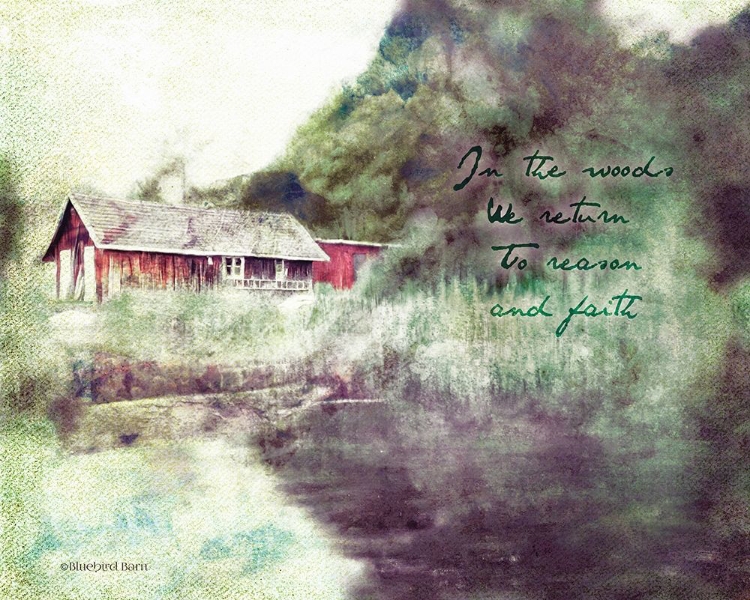 In the woods
We return
To reason
and faith
©Bluebird Barn